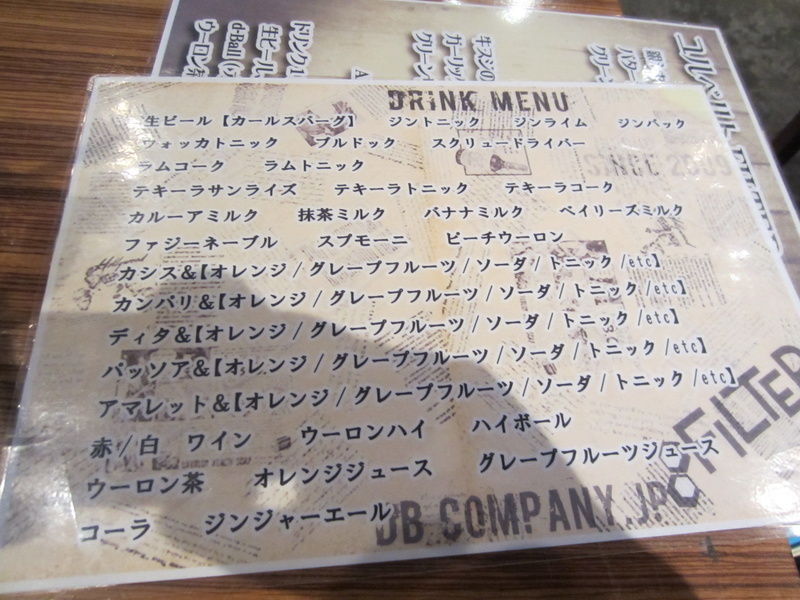 DRINK MENU
生ビール【カールスバーグ】 ジントニック ジンライム ジンバック
ウォッカトニック ブルドック スクリュードライバー
ラムコーク ラムトニック
SINCE 2009
テキーラサンライズ テキーラトニック テキーラコーク
カルーアミルク 抹茶ミルク バナナミルク ベイリーズミルク
ファジーネーブル スプモーニ ピーチウーロン
カシス&【オレンジ/グレープフルーツ/ソーダ/トニック/etc】
カンパリ&【オレンジ/グレープフルーツ/ソーダ/トニック/etc】
ディタ&【オレンジ/グレープフルーツ/ソーダ/トニック/etc】
パッソア&【オレンジ/グレープフルーツ/ソーダ/トニック/etc】
アマレット&【オレンジ/グレープフルーツ/ソーダ/トニック/etc】
赤/白 ワイン ウーロンハイ ハイボール
ウーロン茶 オレンジジュース グレープフルーツジュース
コーラ ジンジャーエール
FILTER
DB.COMPANY.JP
ドリンク
生ビール
d-Ball
ウーロン
牛スジの
ガーリッ
グリーン
バター